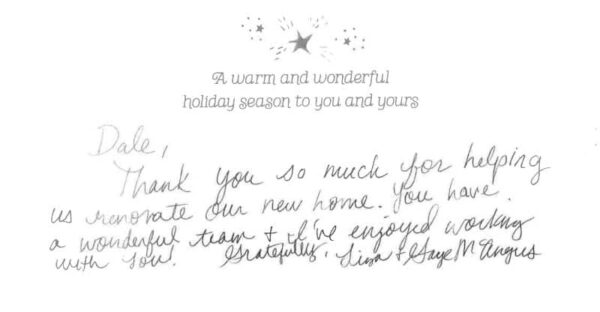 A warm and wonderful
holiday season to you and yours
Dale,
Thank you so much for helping
us renovate our new home. You have
a wonderful team + I've enjoyed working
with you! Gratefully, + Gaye McAngus